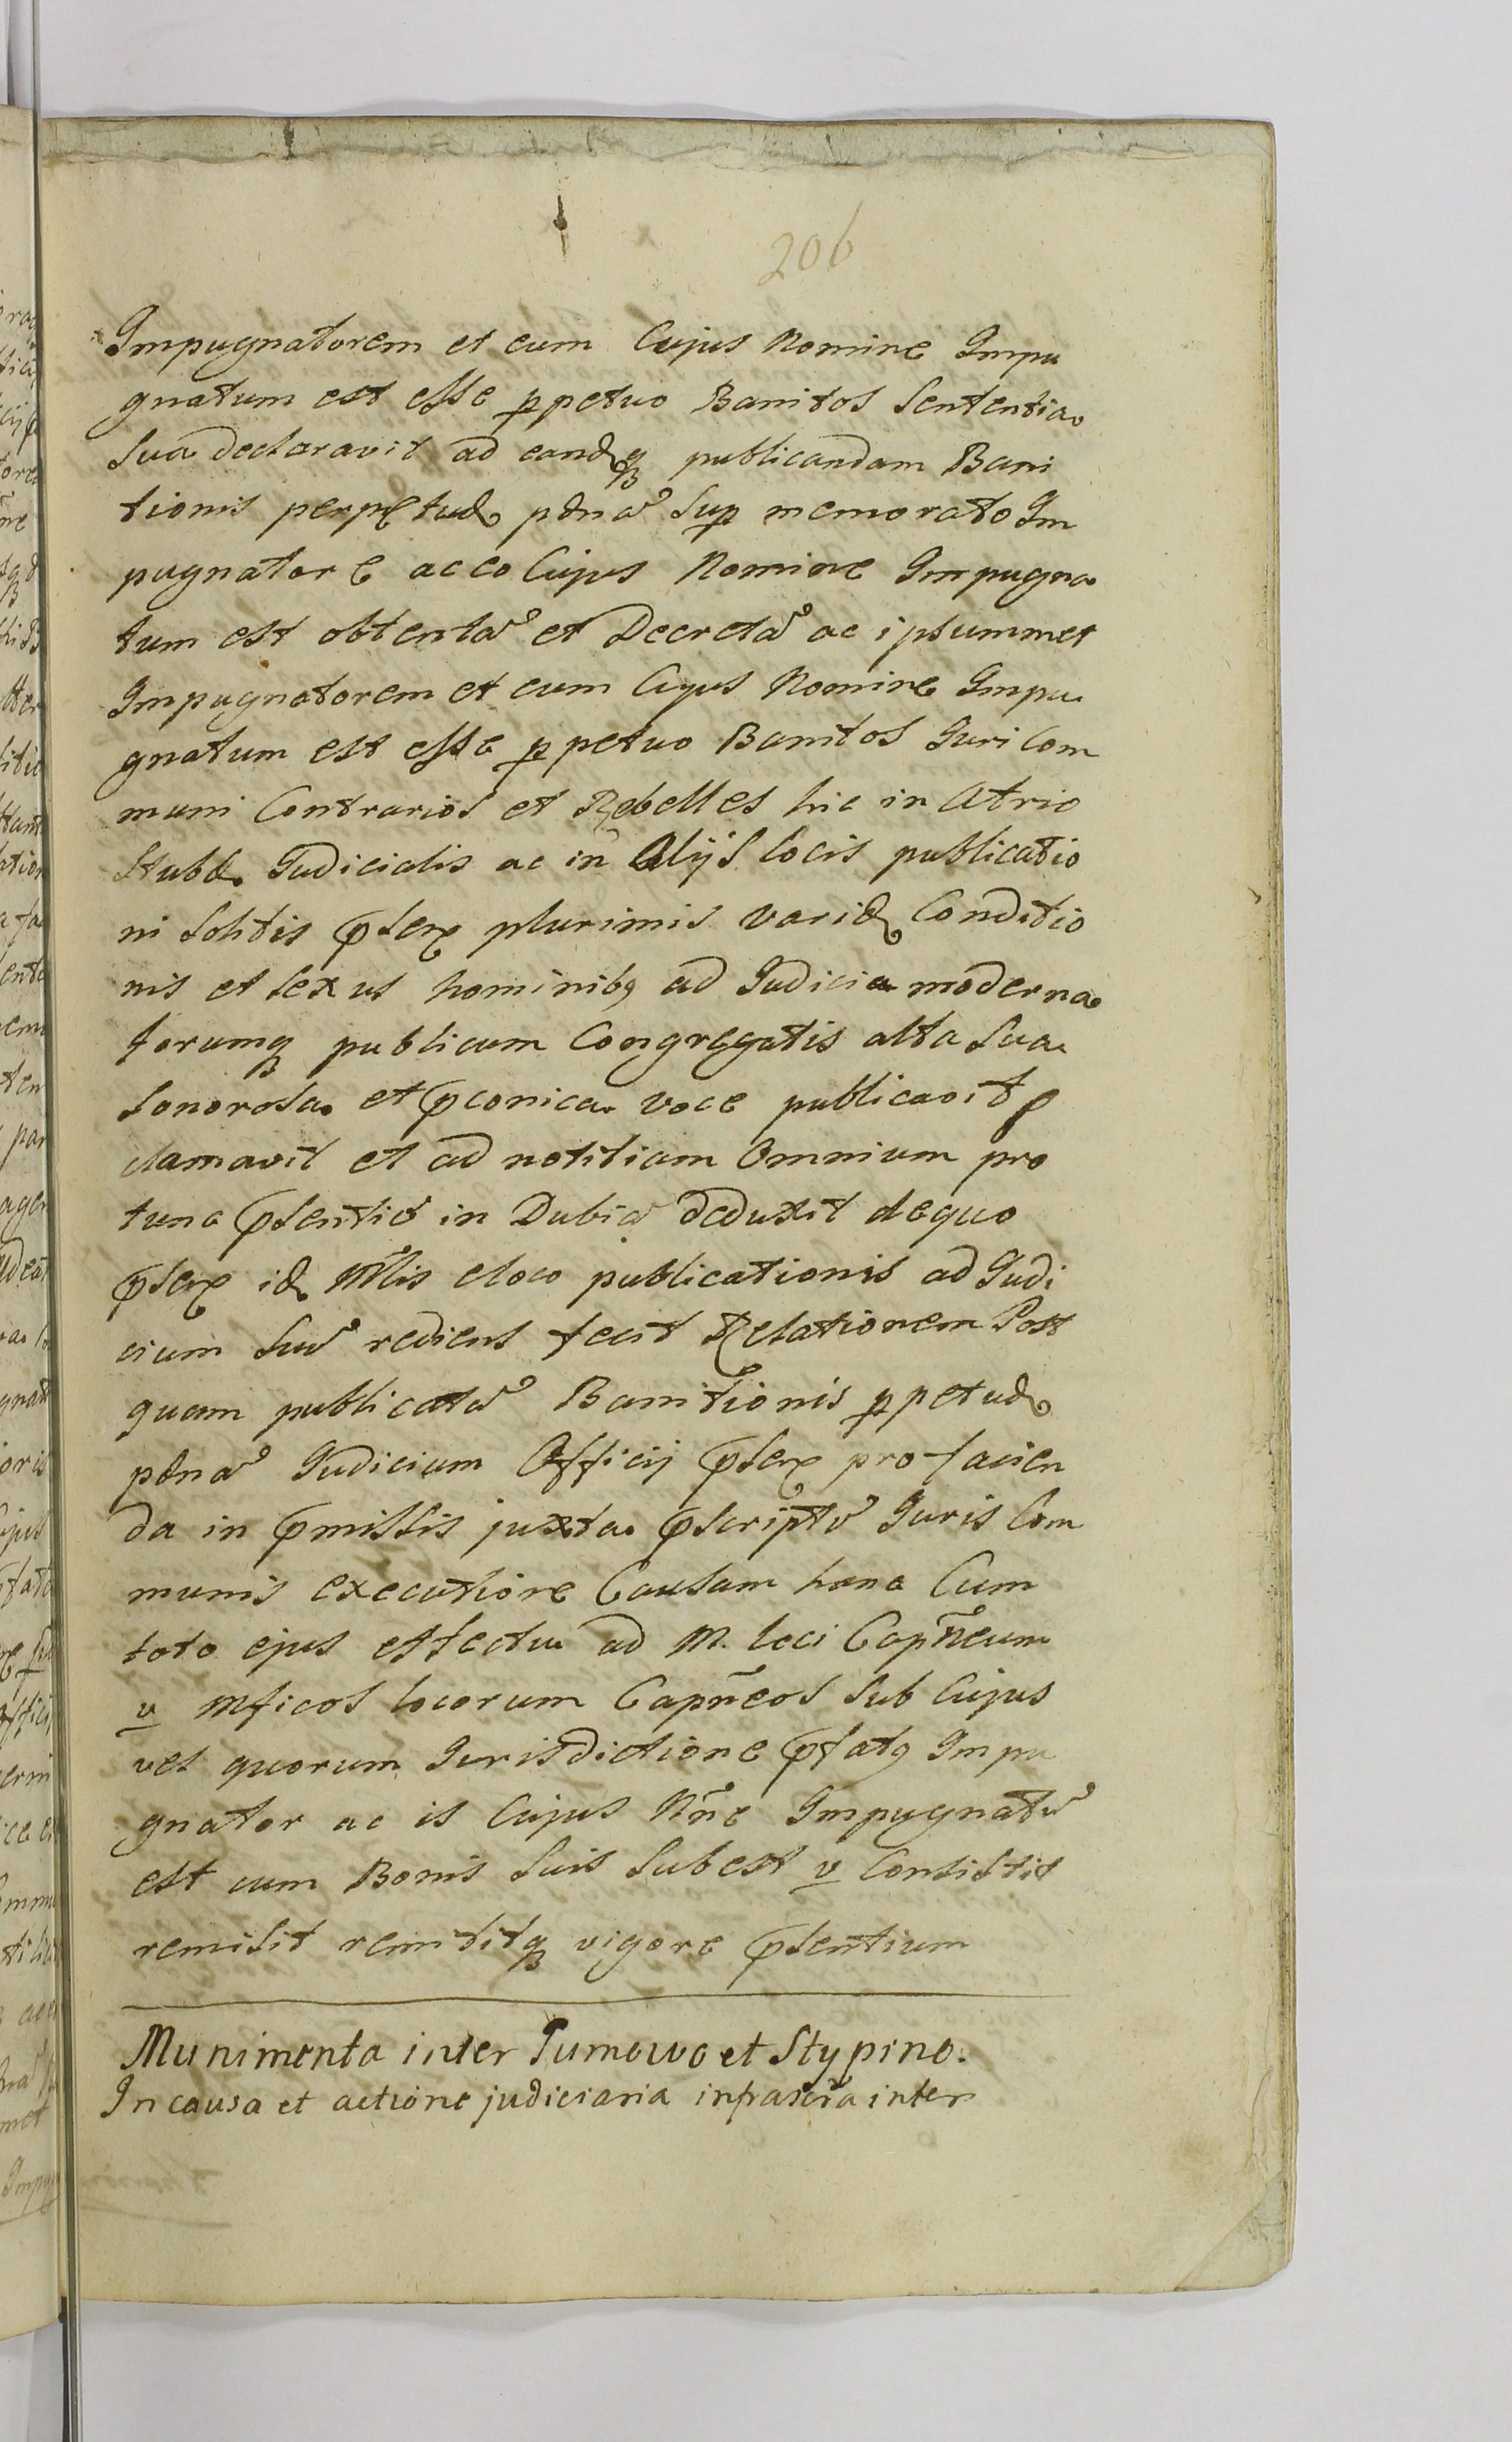 206
Impugnatorem et eum Cujus Nomine Impu
gnatum est esse ꝑpetuo Banitos Sententia
Sua declaravit ad eandꝗ publicandam Bani
tionis perpetuæ pœnã Sup memorato Im
pugnatore ac eo Cujus Nomine Impugna
tum est obtentã et Decretã ac ipsummet
Impugnatorem et eum Cujus Nomine Impu
gnatum est esse ꝑpetuo Banitos Juri Com
muni Contrarios et Rebelles hic in Atrio
Stubæ Judicialis ac in Alijs locis publicatio
ni Solitis pser plurimis variæ Conditio
nis et Sexus hominibꝫ ad Judicia moderna
forumqꝫ publicum Congregatis alta Sua
Sonorosa et pconica voce publicavit p
clamavit et ad notitiam Omnium pro
tunc psentiũ in Dubiã deduxit de quo
pser id Mlis e loco publicationis ad Judi
cium Suũ rediens fecit Relationem Post
quam publicatã Banitionis ꝑpetuæ
pœnã Judicium Officij pser pro facien
da in pmissis juxta pscriptũ Juris Com
munis executione Causam hanc Cum
toto ejus effectu ad M. loci Capñeum
v Mficos locorum Capñeos Sub Cujus
vel quorum Jurisdictione pfatꝫ Impu
gnator ac is Cujus Nñe Impugnatũ
est cum Bonis Suis Subest v Consistit
remisit remititqꝫ vigore psentium
Munimenta inter Tumowo et Stypino.
In causa et actione judiciaria infrascr̃a inter